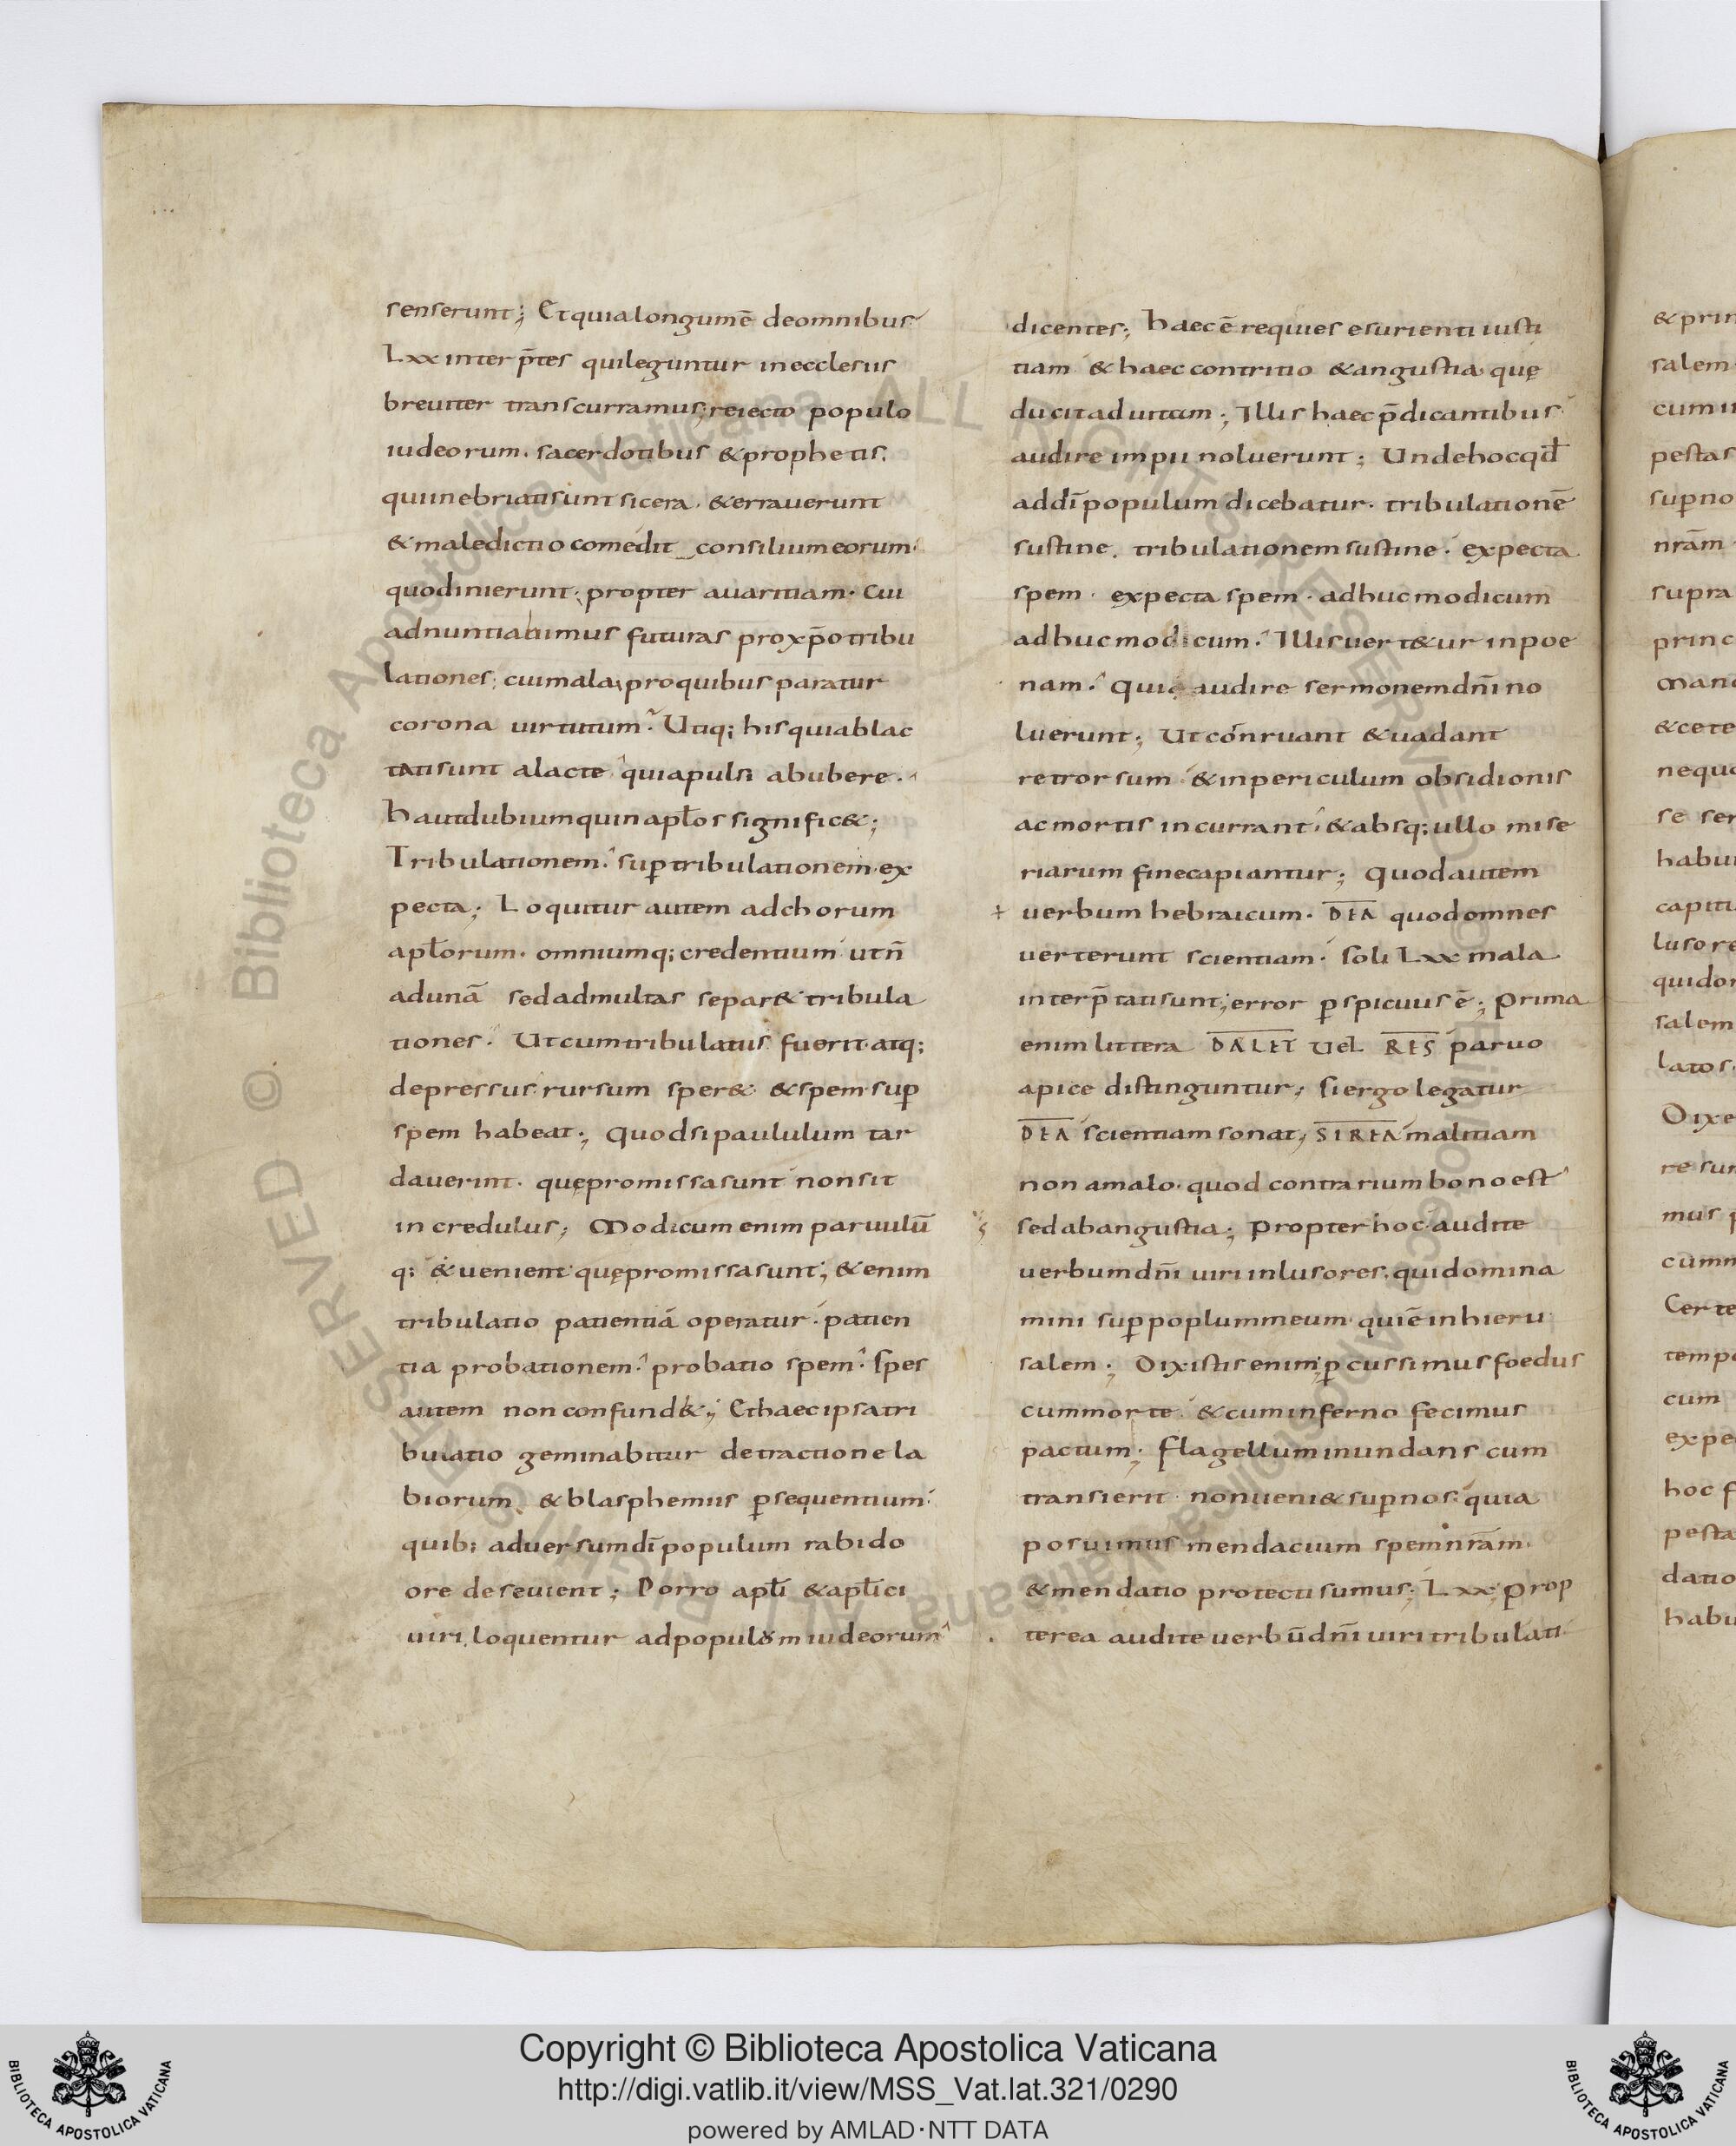 senserunt; Et quia longum ē de omnibus
Lxx inter p̄tes qui leguntur in ecclesiis
breuiter transcurramus; reiecto populo
iudeorum. sacerdotibus & prophetis.
qui inebriati sunt sicera. & errauerunt
& maledictio comedit consilium eorum.
quod inierunt; propter auaritiam. Cui
adnuntiabimus futuras pro xp̄o tribu
lationes; cui mala; pro quibus paratur
corona uirtutum. Utiq; his qui ablac
tati sunt a lacte qui apulsi ab ubere.
haut dubium quin apl̄os signific&;
Tribulationem. sup tribulationem ex
pecta; Loquitur autem ad chorum
apl̄orum. omniumq; credentium ut n̄
ad unā sed ad multas separ& tribula
tiones. Ut cum tribulatus fuerit atq;
depressus rursum sper& & spem sup
spem habeat; Quod si paululum tar
dauerint. quę promissa sunt non sit
incredulus; Modicum enim paruulū
q; & uenient quę promissa sunt; & enim
tribulatio patientiā operatur. patien
tia probationem. probatio spem. spes
autem non confund&; Et haec ipsa tri
bulatio geminabitur detractione la
biorum & blasphemiis p̱sequentium.
quib; aduersum dī populum rabido
ore deseuient; Porro apl̄i & apl̄ici
uiri. loquentur ad populum iudeorum
dicentes; haec ē requies esurienti iusti
tiam & haec contritio & angustia quę
ducit ad uitam; Illis haec p̄dicantibus
audire impii noluerunt; Unde hoc qđ
ad dī populum dicebatur. tribulationē
sustine. tribulationem sustine. expecta
spem. expecta spem. adhuc modicum
adhuc modicum. Illis uert&ur in poe
nam. Quia audire sermonem dn̄i no
luerunt; Ut conruant & uadant
retrorsum & in periculum obsidionis
ac mortis incurrant & absq; ullo mise
riarum fine capiantur; Quod autem
+ uerbum hebraicum. DEA quod omnes
uerterunt scientiam. soli Lxx mala
interp̄tati sunt; error p̱spicuus ē; Prima
enim littera DALET uel RES paruo
apice distinguntur; si ergo legatur
DEA scientiam sonat; SI REA malitiam
non a malo. quod contrarium bono est
sed ab angustia; Propter hoc audite
uerbum dn̄i uiri inlusores. qui domina
mini sup poplum meum qui ē in hieru
salem; Dixistis enim; p̱cussimus foedus
cum morte. & cum inferno fecimus
pactum; flagellum inundans cum
transierit non ueni& sup nos. quia
posuimus mendacium spem nr̄am.
& mendatio protecti sumus; Lxx; Prop
terea audite uerbū dn̄i uiri tribulati
& prin
salem
cum i
pestas
sup no
nr̄am
supra
princ
Mand
& cete
nequa
se ser
habui
capitu
lusore
quidom
salem
latos.
Dixe
re sum
mus
cumm
Certe
tempe
cum
expe
hoc f
pesta
datio
habu
Copyright © Biblioteca Apostolica Vaticana
http://digi.vatlib.it/view/MSS_Vat.lat.321/0290
powered by AMLAD·NTT DATA
BIBLIOTECA APOSTOLICA VATICANA
BIBLIOTECA APOSTOLICA VATICANA